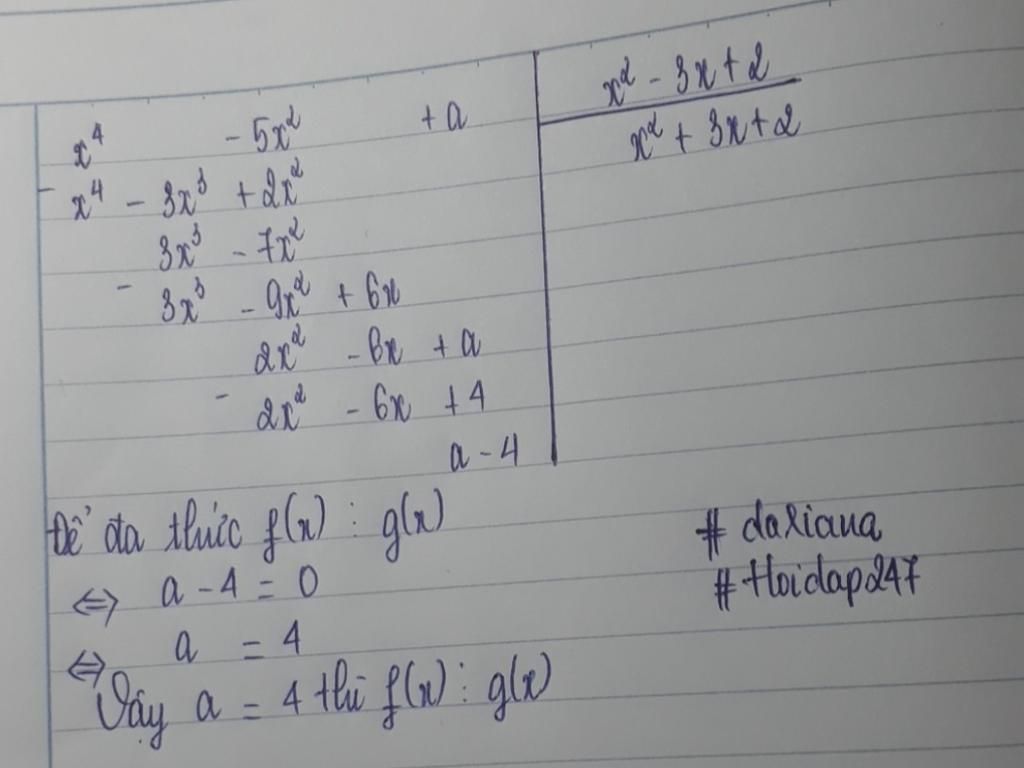 x⁴ - 5x² + a | x² - 3x + 2
- x⁴ - 3x³ + 2x² | x² + 3x + 2
3x³ - 7x²
- 3x³ - 9x² + 6x
2x² - 6x + a
- 2x² - 6x + 4
a - 4
Để đa thức f(x) ⋮ g(x)
⇔ a - 4 = 0
⇔ a = 4
Vậy a = 4 thì f(x) ⋮ g(x)
# dariana
# Hoidap247